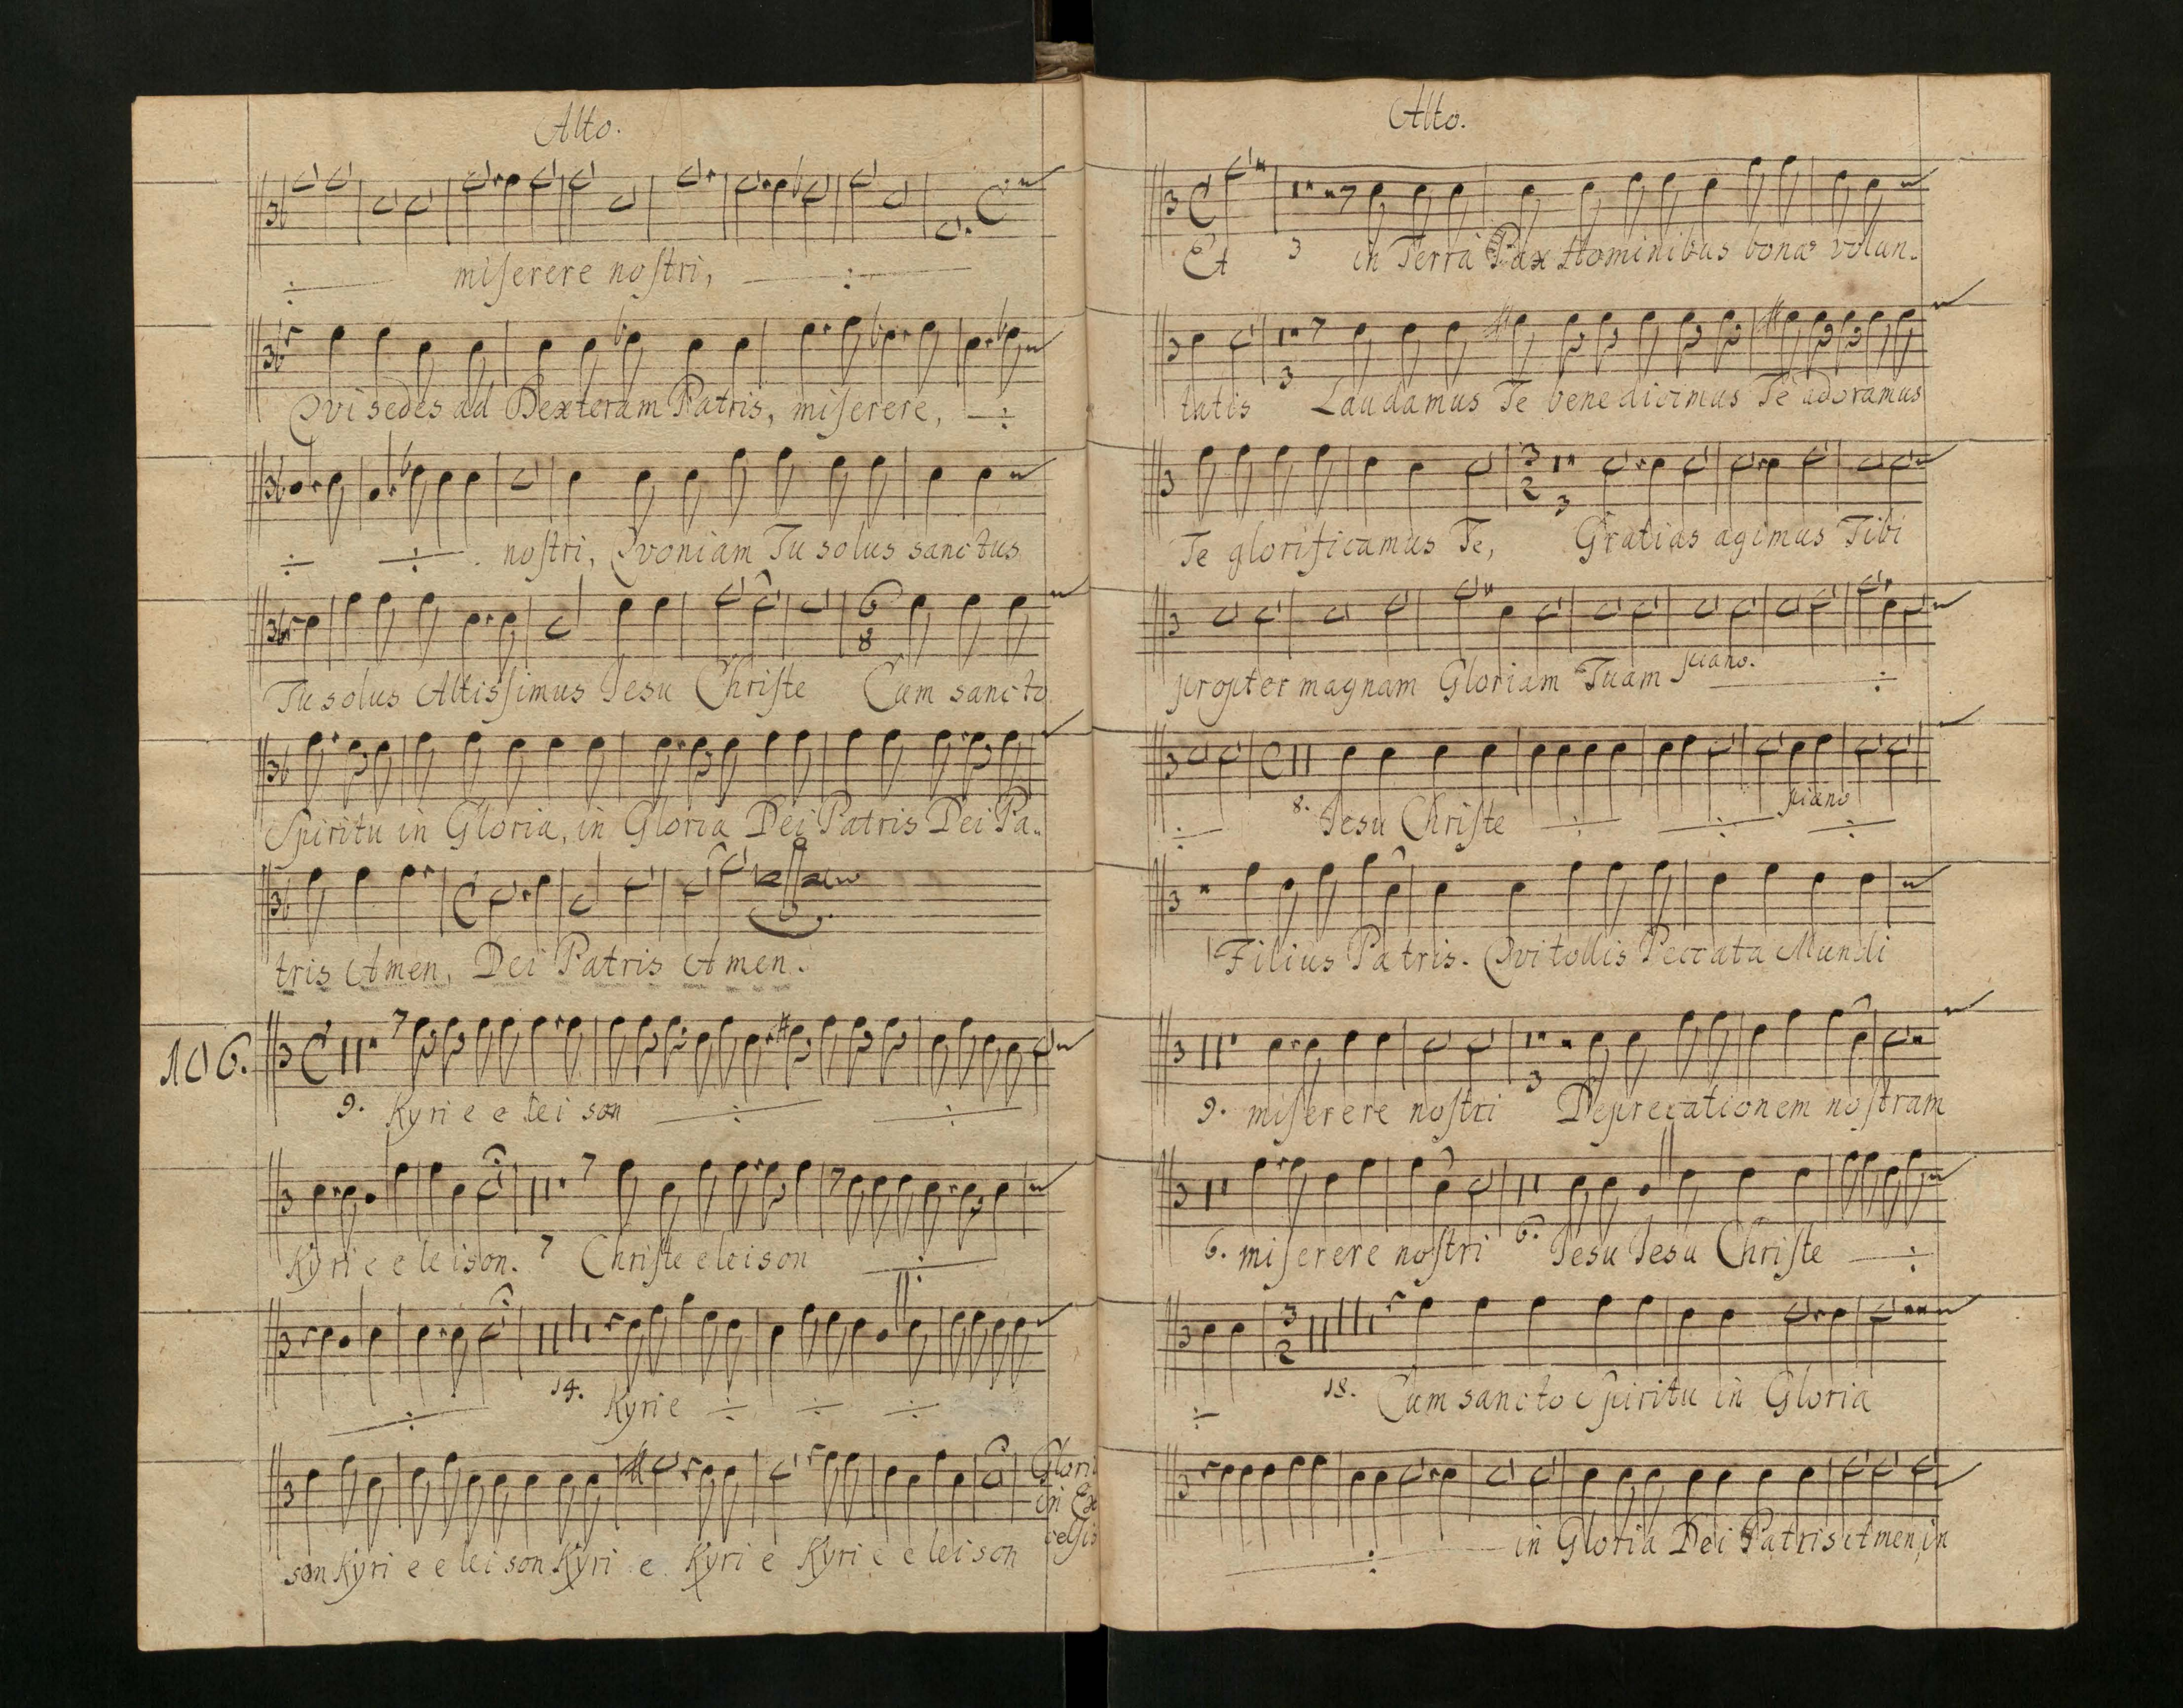 Alto.
miserere nostri,
Qvi sedes ad Dexteram Patris, miserere,
nostri, Qvoniam Tu solus sanctus
Tu solus Altissimus Jesu Christe Cum sancto
Spiritu in Gloria, in Gloria Dei Patris Dei Pa-
tris Amen, Dei Patris Amen.
106.
9. Kyri e e lei son
Kyri e e le ison. 7 Christe eleison
14. Kyrie
son Kyri e e lei son Kyri e Kyri e Kyri e e lei son
Gloria
in Ex
celsis
Alto.
Et 3 in Terra Pax Hominibus bonæ volun-
tatis 3 Laudamus Te benedicimus Te adoramus
Te glorificamus Te, 3 Gratias agimus Tibi
propter magnam Gloriam Tuam piano.
8. Jesu Christe piano
1 Filius Patris. Qvi tollis Peccata Mundi
9. miserere nostri 3 Deprecationem nostram
6. miserere nostri 6. Jesu Jesu Christe
18. Cum sancto Spiritu in Gloria
in Gloria Dei Patris Amen, in